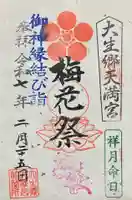 大生郷天満宮
祥月命日
梅花祭
御神縁結び詣
令和七年 二月二十五日